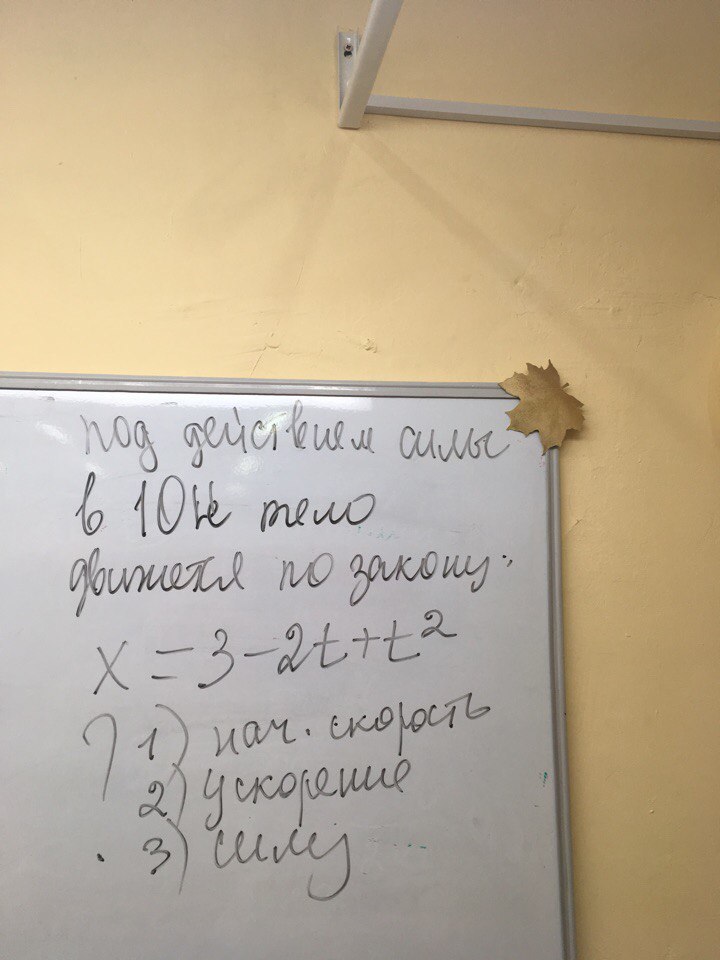 под действием силы
в 10 Н тело
движется по закону:
x = 3 - 2t + t²
? 1) нач. скорость
2) ускорение
3) силу